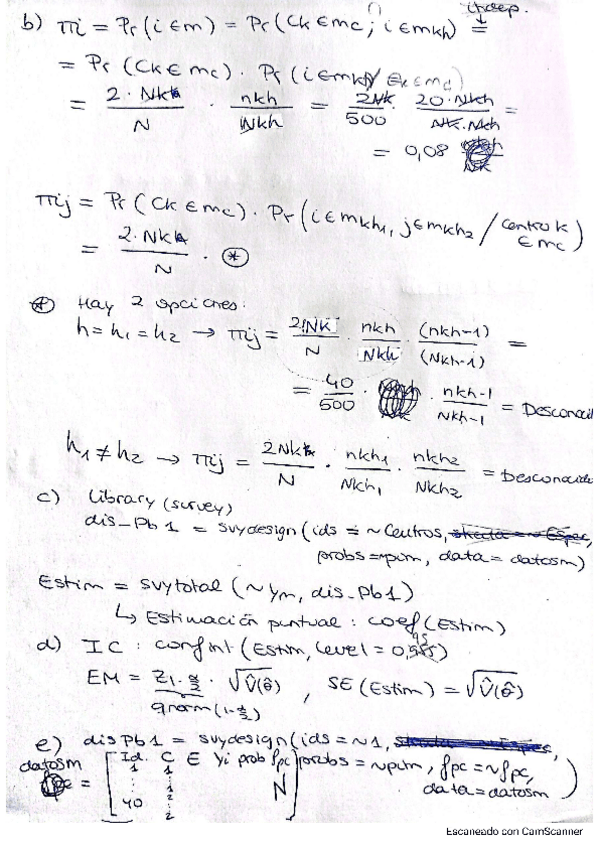 indep.
b) πi = Pr(i ∈ m) = Pr(Ck ∈ mc ∩ i ∈ mkh) =
= Pr(Ck ∈ mc) · Pr(i ∈ mkh / Ck ∈ mc)
= 2·Nk/N · nkh/Nkh = 2Nk/500 · 20·Nkh/Nk·Nkh =
= 0,08
πij = Pr(Ck ∈ mc) · Pr(i ∈ mkh1, j ∈ mkh2 / centro k ∈ mc)
= 2·Nk/N · ⊛
⊛ Hay 2 opciones:
h = h1 = h2 → πij = 2Nk/N · nkh/Nkh · (nkh-1)/(Nkh-1) =
= 40/500 · nkh-1/Nkh-1 = Desconocid
h1 ≠ h2 → πij = 2Nk/N · nkh1/Nkh1 · nkh2/Nkh2 = Desconocido
c) Library(survey)
dis_Pb1 = svydesign(ids = ~Centros,
probs = ~pim, data = datosm)
Estim = svytotal(~ym, dis_Pb1)
↳ Estimación puntual: coef(Estim)
d) IC: confint(Estim, level = 0,95)
EM = Z1-α/2 · √V̂(θ̂) , SE(Estim) = √V̂(θ̂)
qnorm(1-α/2)
e) disPb1 = svydesign(ids = ~1,
datosm = [Id. C E Yi prob fpc] probs = ~pim, fpc = ~fpc,
1 1 data = datosm)
40 2 N
Escaneado con CamScanner